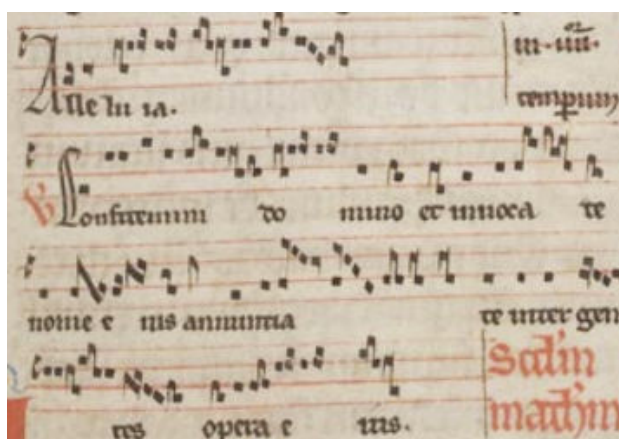 Alle lu ia.
tempum
℣ Confitemini do mino et inuoca te
nome e ius annuntia te inter gen
tes opera e ius.